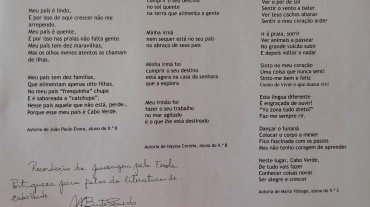 Meu país é lindo,
E por isso de aqui crescer não me
arrependo.
Meu país é quente,
E por isso nas praias não falta gente.
Meu país tem dez maravilhas,
Mas os olhos menos atentos as chamam
de ilhas.
Meu país tem dez famílias,
Que alimentam apenas oito filhos.
No meu país "fresquinha" chupo
E é saboreada a "catchupa".
Nesse país aquele que não está, perde...
Porque esse meu país é Cabo Verde.
Autoria de João Paulo Évora, aluno do 9.º B
Cumprir o seu destino
no sol quente
na terra que alimenta a gente
Minha irmã
nem sequer está no seu país
no abraço de seus pais
Minha irmã foi
cumprir o seu destino
está agora na casa da senhora
que a explora
Meu irmão foi
fazer o seu trabalho
no mar agitado
é o que lhe está destinado
Autoria de Naysea Correia, aluna do 9.º B
Ver o pôr do sol
Sentir o vento a abanar
Ver teus cachos abanar
Sentir o meu coração arder
Ir à praia, sorrir
Ver animais a passear
No grande vulcão subir
E depois voltar a nadar
Sinto no meu coração
Uma coisa que nunca senti
Sinto-me bem e feliz
Gosto de viver o que nunca vivi
Esta língua diferente
É engraçada de ouvir!
"Yo zona tudo dreto!"
Faz-me sempre rir.
Dançar o funaná
Colocar o corpo a mexer
Fico fascinada com os passos
Mas não tenho coragem de aprender
Neste lugar, Cabo Verde,
De tudo vais fazer
Conhecer coisas novas
Ser alegre e crescer
Autoria de Maria Vistage, aluna do 9.º C
Recordação da passagem pela Escola
Portuguesa para falar da literatura de
Cabo Verde